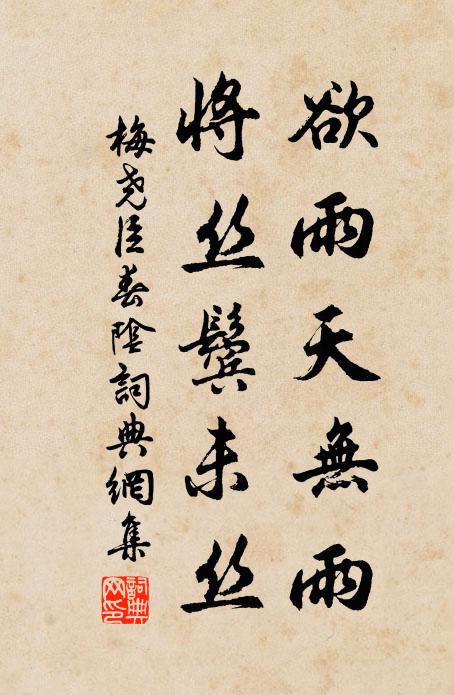 欲雨天無雨
将丝鬓未丝
梅尧臣春陰詞典網集
詞典